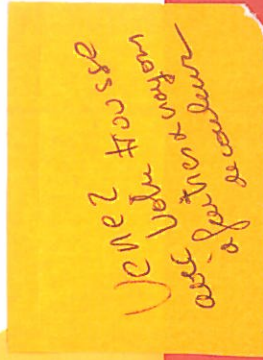 Venez
avec trousse
à feutres crayon
de couleur